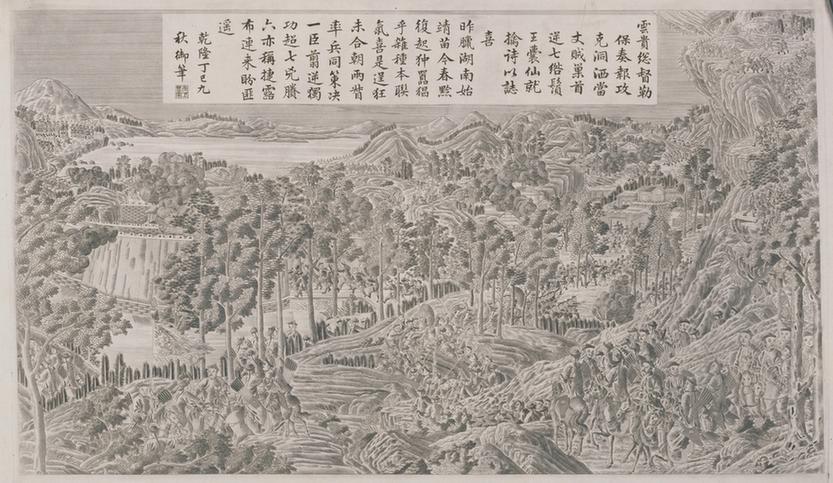 雲貴總督勒
保奏報攻
克洞洒當
丈賊巢首
逆七綹鬚
王囊仙就
擒詩以誌
喜
昨臘湖南始
靖苗今春黔
復起狆囂猖
乎雜種本聯
氣喜是逞狂
未合朝兩湖
率兵同策決
一臣翦逆獨
功超七兇勝
六亦稱捷露
布連来盼匪
遥
乾隆丁巳九
秋御筆